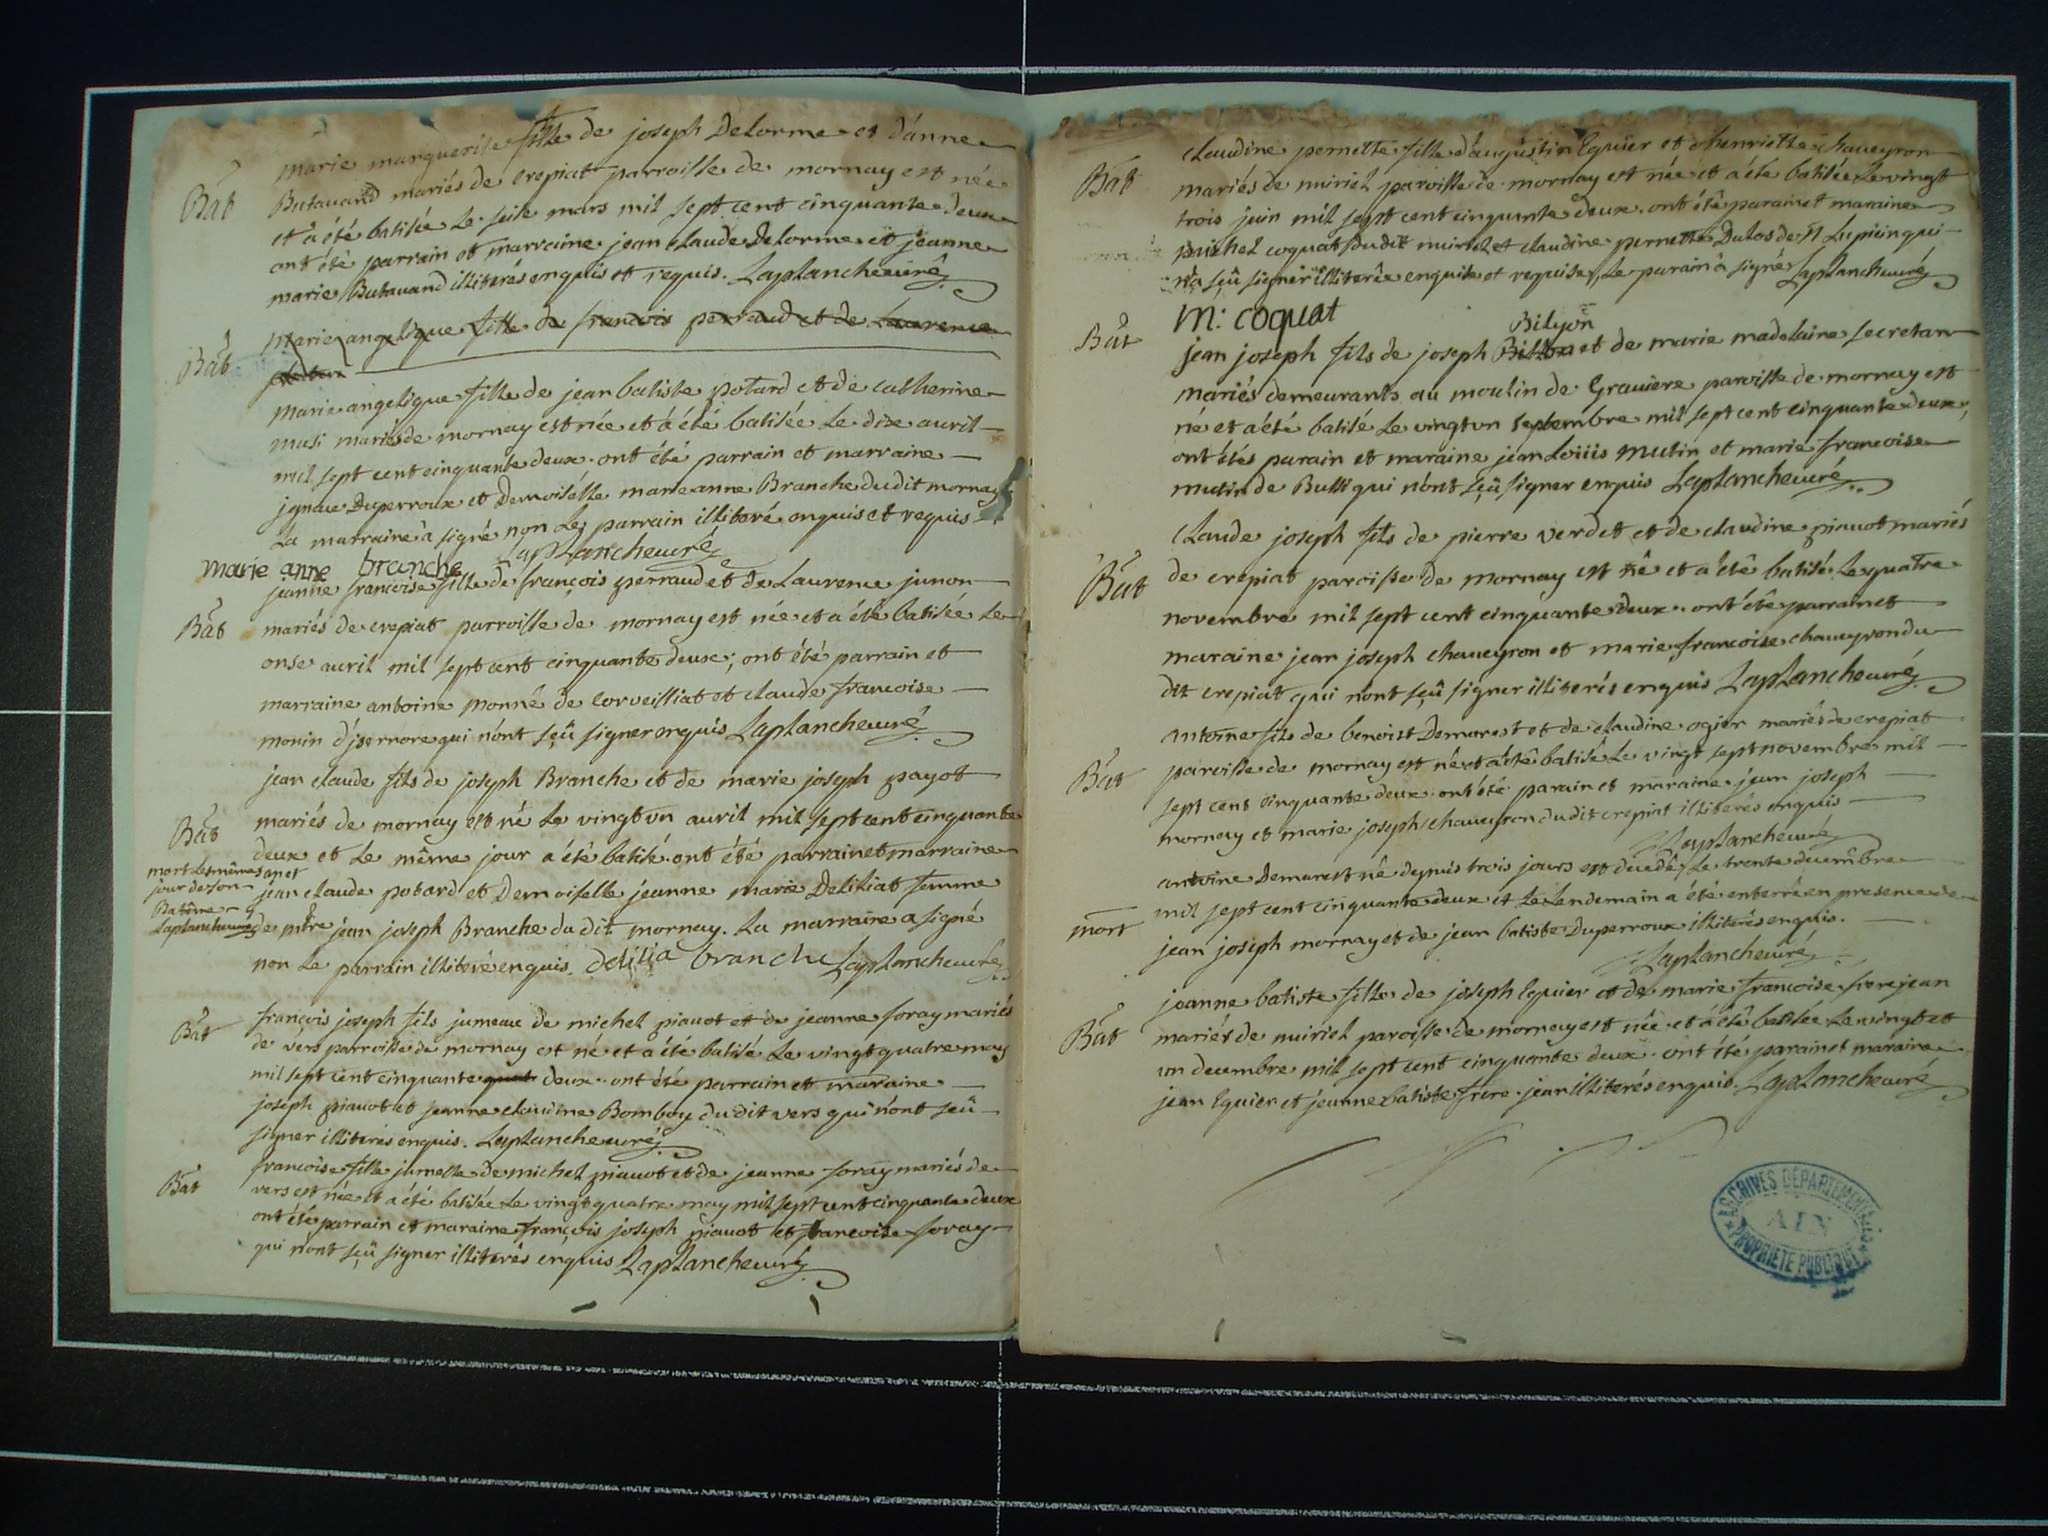 marie marguerite fille de joseph Delorme et d'anne
Bat
Butavand mariés de crepiat parroisse de mornay est née
et a été batisée le seise mars mil sept cent cinquante deux
ont été parrain et marraine jean claude Delorme et jeanne
marie Butavand illiterés enquis et requis. Laplanche curé
Bat
Marie angelique fille de francois perraud et de Laurence
marie angelique fille de jean batiste potard et de catherine
musi mariés de mornay est née et á été batisée le dix avril
mil sept cent cinquante deux. ont été parrain et marraine
ignace Duperroux et Demoiselle marie anne Branche dudit mornay
la marraine à signé non le parrain illiteré enquis et requis
Laplanche curé
marie anne branche
jeanne francoise fille de françois perraud et de Laurence junon
Bat
mariés de crepiat parroisse de mornay est née et a été batisée le
onse avril mil sept cent cinquante deux; ont été parrain et
marraine antoine monné de Corveilliat et claude francoise
monin d'jsernore qui n'ont sçû signer enquis Laplanche curé
jean claude fils de joseph Branche et de marie joseph payot
Bat
mariés de mornay est né le vingt vn avril mil sept cent cinquante
deux et le même jour a été batisé. ont été parrain et marraine
mort le même an et
jour de son
Batême
Laplanche curé
jean claude potard et Demoiselle jeanne marie Deliliat femme
de mtre jean joseph Branche du dit mornay. La marraine a signé
non le parrain illiteré enquis. delilia branche Laplanche curé
françois joseph fils jumeau de michel piauot et de jeanne soray mariés
Bat
de vers parroisse de mornay est né et a été batisé le vingt quatre may
mil sept cent cinquante quat deux. ont été parrain et maraine
joseph piauot et jeanne claudine Bomboy dudit vers qui n'ont sçû
signer illiterés enquis. Laplanche curé
francoise fille jumelle de michel piauot et de jeanne soray mariés de
Bat
vers est née et a été batisée le vingt quatre may mil sept cent cinquante deux
ont été parrain et maraine françois joseph piauot et francoise soray
qui n'ont sçû signer illiterés enquis Laplanche curé
claudine pernette fille d'augustin Eguier et d'henriette chaveyron
Bat
mariés de niriel paroisse de mornay est née et a été batisée le vingt
trois juin mil sept cent cinquante deux. ont été parain et maraine
michel coquat dudit niriel et claudine pernette Dalos de st Lupicin qui
n'a sçû signer illiterée enquise et requise, le parain a signé Laplanche curé
M: coquat
Bilyon
Bat
jean joseph fils de joseph et de marie madelaine secretan
mariés demeurants au moulin de Graviere paroisse de mornay est
né et a été batisé le vingt vn septembre mil sept cent cinquante deux,
ont étés parain et maraine jean Loüis mutin et marie francoise
mutin de Bussi qui n'ont sçû signer enquis Laplanche curé
Claude joseph fils de pierre verdet et de claudine piauot mariés
Bat
de crepiat paroisse de mornay est né et a été batisé le quatre
novembre mil sept cent cinquante deux. ont été parrain et
maraine jean joseph chaveyron et marie francoise chaveyron du
dit crepiat qui n'ont sçû signer illiterés enquis Laplanche curé
antoine fils de benoist Demarest et de claudine ogier mariés de crepiat
Bat
paroisse de mornay est né et a été batisé le vingt sept novembre mil
sept cent cinquante deux. ont été parain et maraine jean joseph
mornay et marie joseph chaveyron dudit crepiat illiterés enquis
Laplanche curé
antoine Demarest né depuis trois jours est decedé le trente decembre
mort
mil sept cent cinquante deux et le lendemain a été enterré en presence de
jean joseph mornay et de jean batiste Duperroux illiterés enquis.
Laplanche curé
jeanne batiste fille de joseph Eguier et de marie francoise frerejean
Bat
mariés de niriel paroisse de mornay est née et a été batisée le vingt et
vn decembre mil sept cent cinquante deux. ont été parain et maraine
jean Eguier et jeanne batiste frere. jean illiterés enquis. Laplanche curé
ARCHIVES DÉPARTEMENTALES
AIN
PROPRIÉTÉ PUBLIQUE